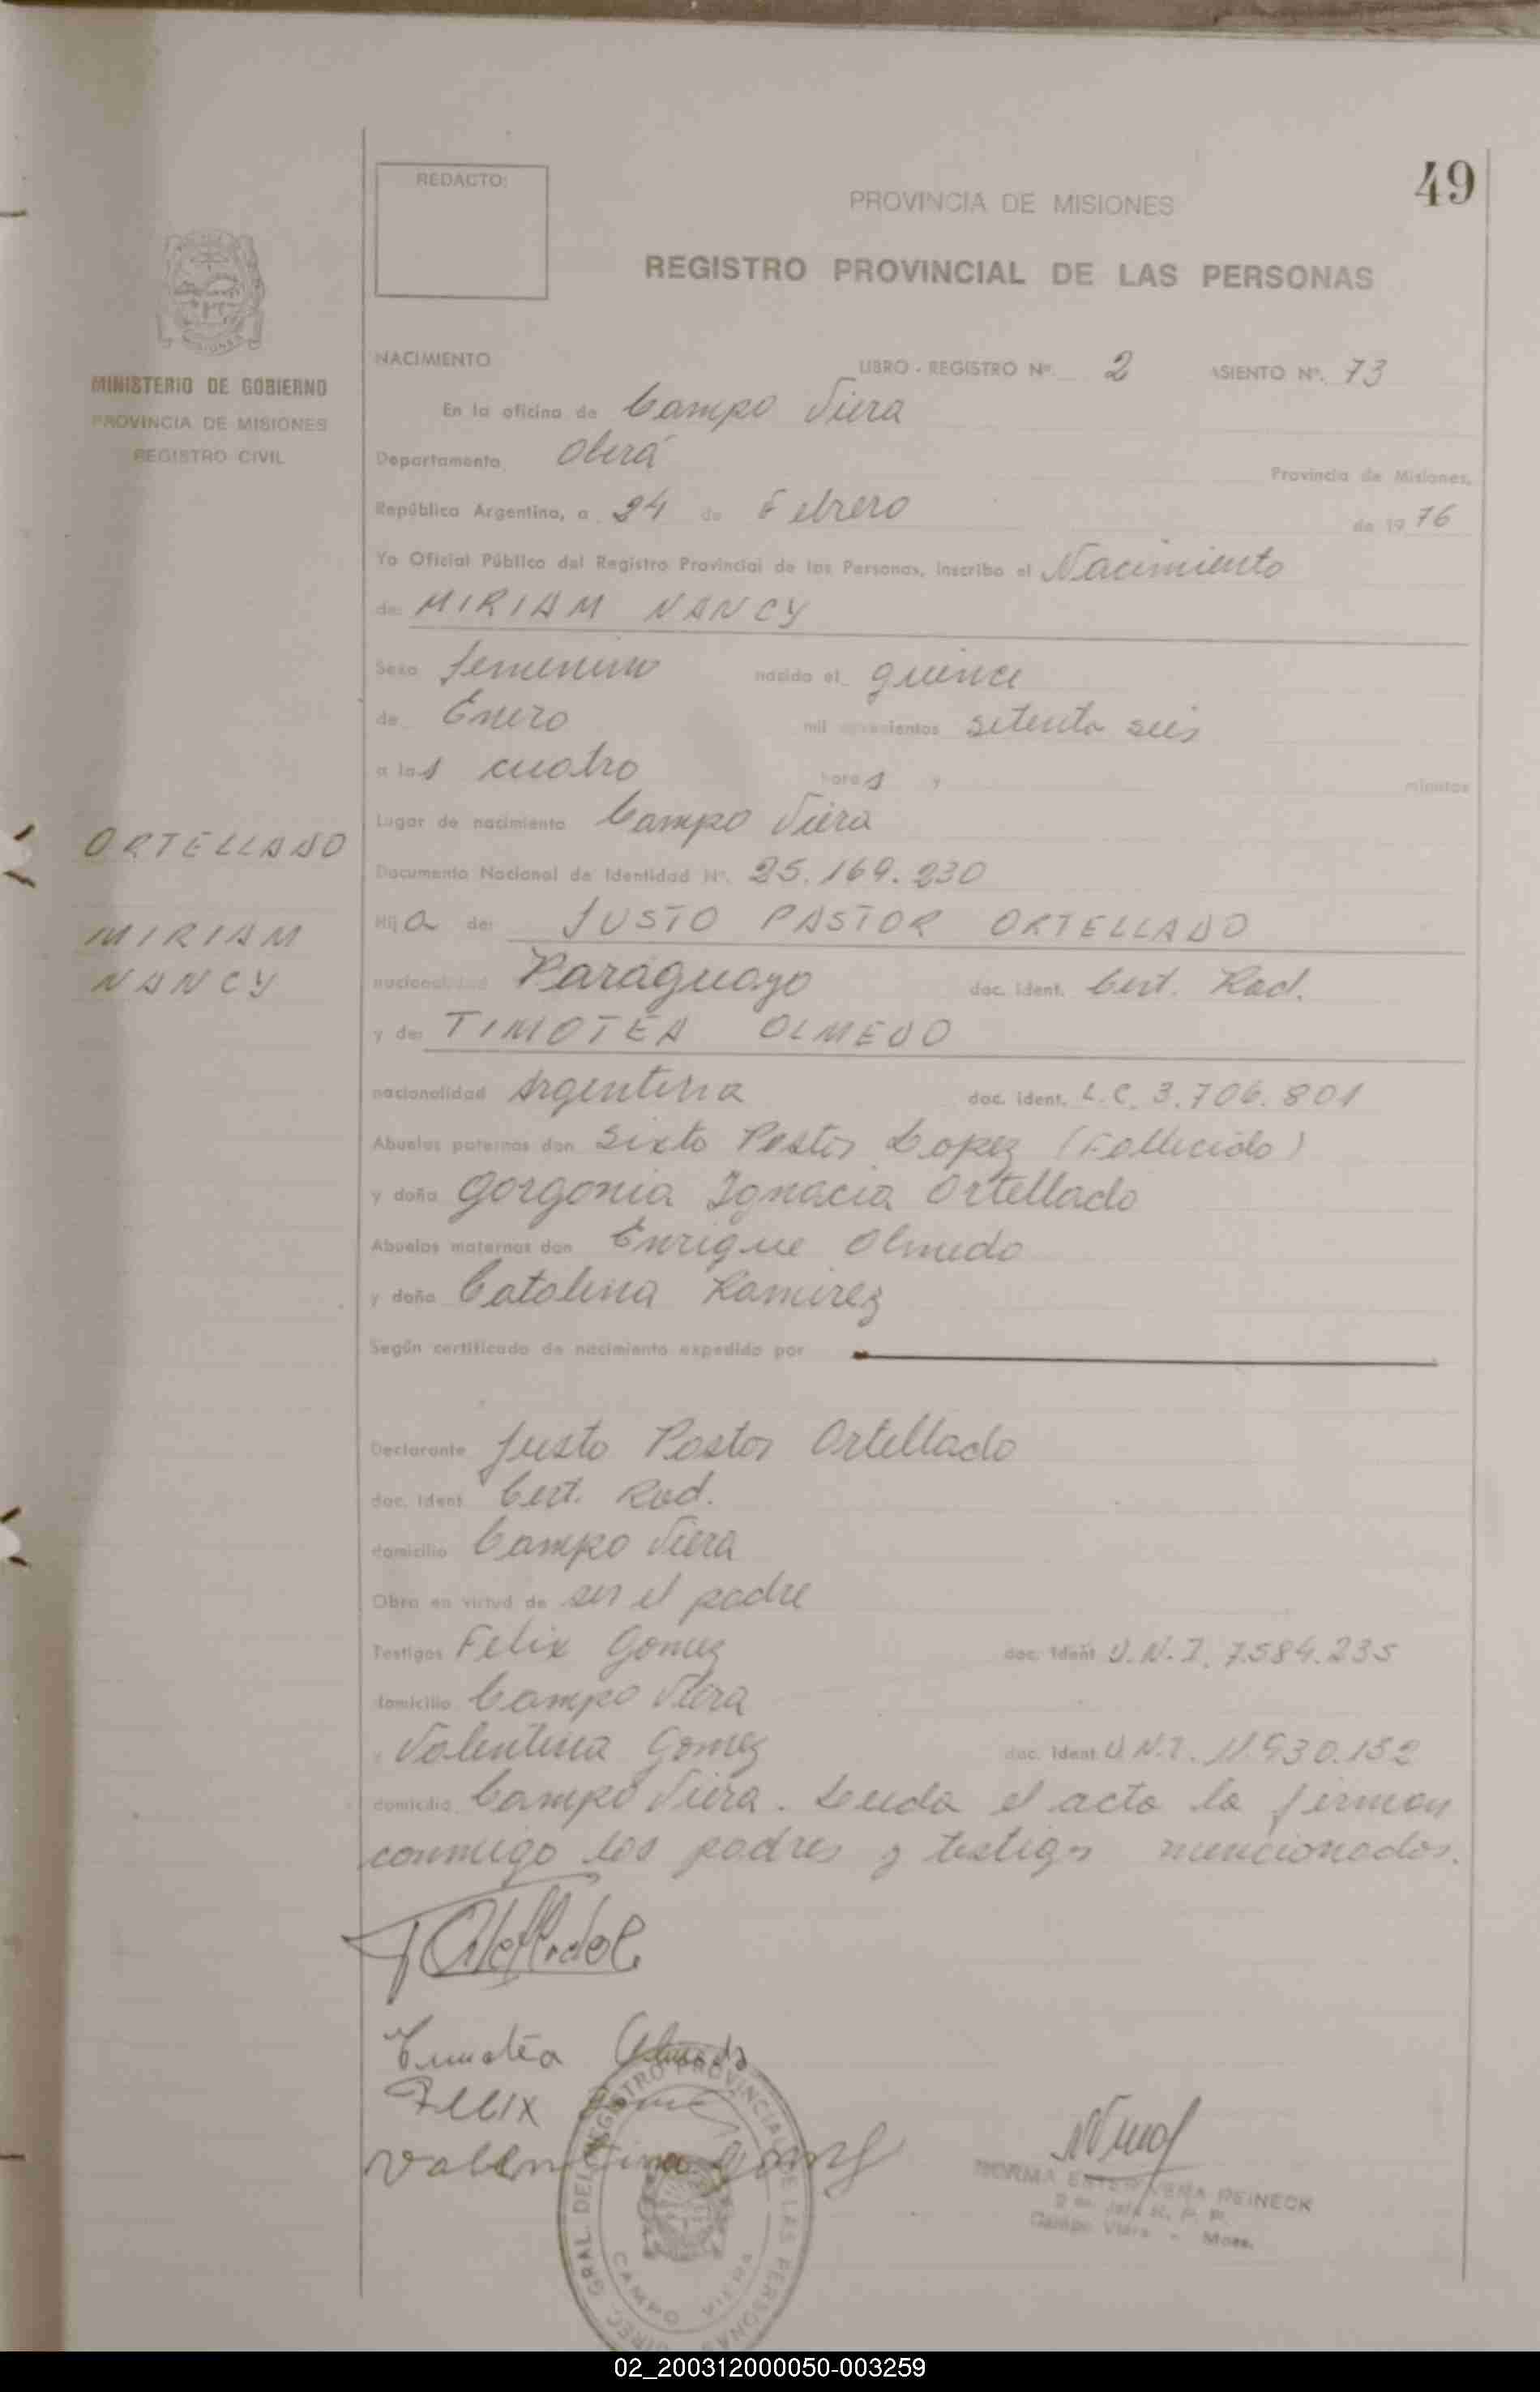 49
REDACTO:
PROVINCIA DE MISIONES
REGISTRO PROVINCIAL DE LAS PERSONAS
MINISTERIO DE GOBIERNO
PROVINCIA DE MISIONES
REGISTRO CIVIL
NACIMIENTO LIBRO - REGISTRO Nº. 2 ASIENTO Nº. 73
En la oficina de Campo Viera
Departamento Oberá Provincia de Misiones,
República Argentina, a 24 de Febrero de 19 76
Yo Oficial Público del Registro Provincial de las Personas, inscribo el Nacimiento
de: MIRIAM NANCY
Sexo femenino nacido el quince
de Enero mil novecientos setenta seis
a las cuatro horas y minutos
Lugar de nacimiento Campo Viera
ORTELLADO
MIRIAM
NANCY
Documento Nacional de Identidad Nº. 25.169.230
Hija de: JUSTO PASTOR ORTELLADO
nacionalidad Paraguayo doc. ident. Cert. Rad.
y de: TIMOTEA OLMEDO
nacionalidad Argentina doc. ident. L.C. 3.706.801
Abuelos paternos don Sixto Pastor Lopez (Fallecido)
y doña Gorgonia Ignacia Ortellado
Abuelos maternos don Enrique Olmedo
y doña Catalina Ramirez
Según certificado de nacimiento expedido por
Declarante Justo Pastor Ortellado
doc. ident. Cert. Rad.
domicilio Campo Viera
Obra en virtud de ser el padre
Testigos Felix Gomez doc. ident D.N.I. 7.584.235
domicilio Campo Viera
y Valentina Gomez doc. ident D.N.I. 11.930.152
domicilio Campo Viera. Leida el acta la firman
conmigo los padres y testigos mencionados.
Timotea Olmedo
Felix Gomez
Valentina Gomez
DIREC. GRAL. DEL REGISTRO PROVINCIAL DE LAS PERSONAS
CAMPO VIERA
NORMA ESTER VERA REINECK
Jefe R. P. P.
Campo Viera - Mnes.
02_200312000050-003259